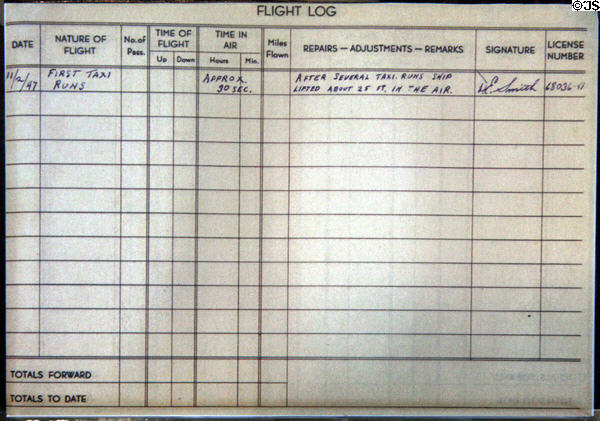 © JS
FLIGHT LOG
DATE
NATURE OF
FLIGHT
No. of
Pass.
TIME OF
FLIGHT
Up Down
TIME IN
AIR
Hours Min.
Miles
Flown
REPAIRS — ADJUSTMENTS — REMARKS
SIGNATURE
LICENSE
NUMBER
11/2/47
FIRST TAXI
RUNS
APPROX.
30 SEC.
AFTER SEVERAL TAXI RUNS SHIP
LIFTED ABOUT 25 FT. IN THE AIR.
Smith
68036
TOTALS FORWARD
TOTALS TO DATE